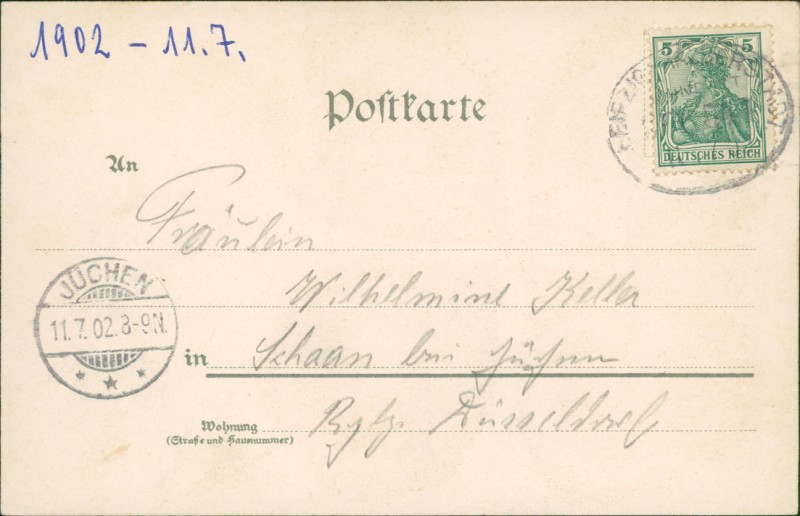 1902 – 11.7.
5 5
DEUTSCHES REICH
LEIPZIG
Postkarte
An
Fräulein
Wilhelmine Keller
JÜCHEN
11.7.02.8-9N.
in Schaan bei Jüchen
Wohnung
(Straße und Hausnummer)
Rgbz. Düsseldorf